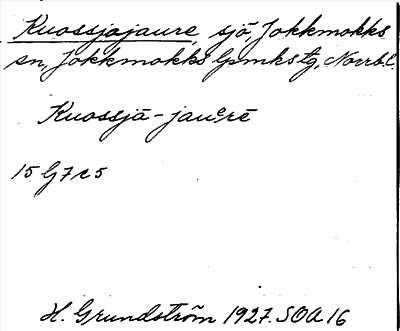 Kuossjajaure, sjö, Jokkmokks
sn, Jokkmokks lpmkstg, Norrb.l.
Kuossjā-jauᵉrē
15 G 7 c 5
H. Grundström 1927. SOA 16